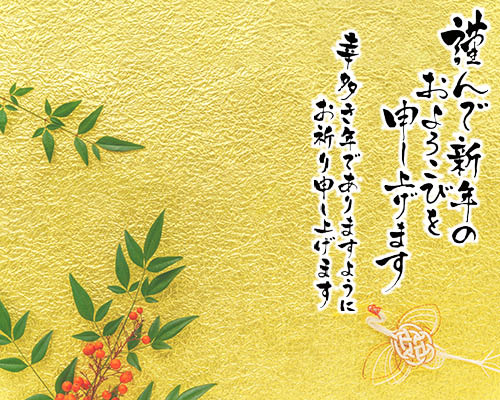 謹んで新年の
およろこびを
申し上げます
幸多き年でありますように
お祈り申し上げます